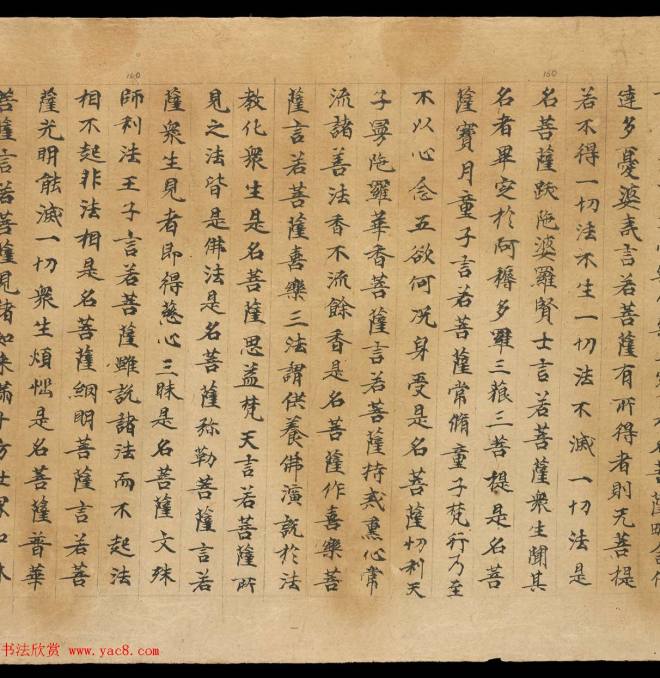 達多憂婆夷言若菩薩有所得者則无菩提
若不得一切法不生一切法不滅一切法是
名菩薩跋陁婆羅賢士言若菩薩衆生聞其
名者畢定於阿耨多羅三藐三菩提是名菩
薩寶月童子言若菩薩常脩童子梵行乃至
不以心念五欲何況身受是名菩薩忉利天
子曼陁羅華香菩薩言若菩薩持戒熏心常
流諸善法香不流餘香是名菩薩作喜樂菩
薩言若菩薩喜樂三法謂供養佛演說於法
教化衆生是名菩薩思益梵天言若菩薩所
見之法皆是佛法是名菩薩弥勒菩薩言若
薩衆生見者即得慈心三昧是名菩薩文殊
師利法王子言若菩薩雖說諸法而不起法
相不起非法相是名菩薩網明菩薩言若菩
薩光明能滅一切衆生煩惱是名菩薩普華
菩薩言若菩薩見諸如來滿十方世界如林
160
150
书法欣赏 www.yac8.com